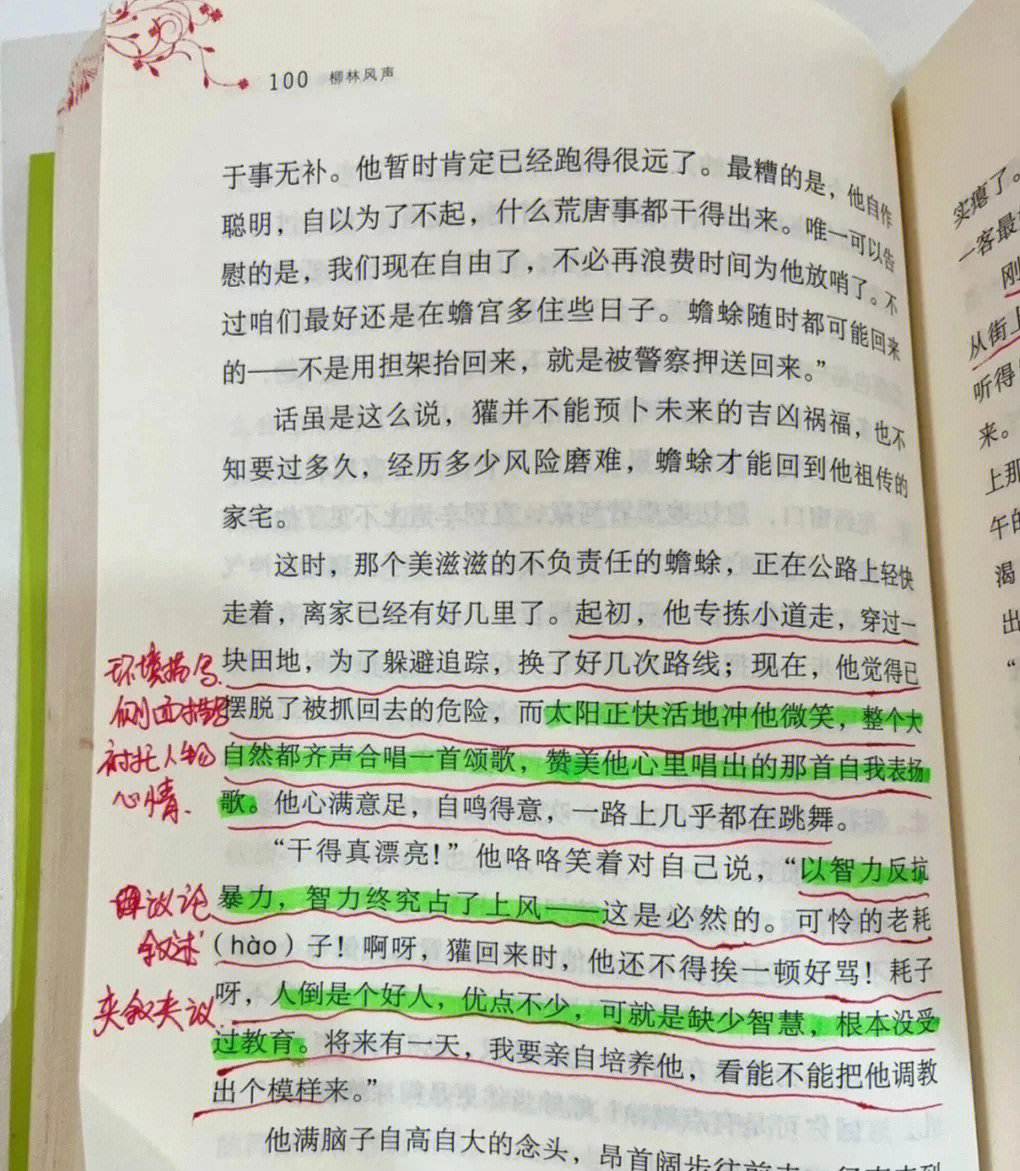 100 柳林风声
于事无补。他暂时肯定已经跑得很远了。最糟的是，他自作
聪明，自以为了不起，什么荒唐事都干得出来。唯一可以告
慰的是，我们现在自由了，不必再浪费时间为他放哨了。不
过咱们最好还是在蟾宫多住些日子。蟾蜍随时都可能回来
的——不是用担架抬回来，就是被警察押送回来。”
话虽是这么说，獾并不能预卜未来的吉凶祸福，也不
知要过多久，经历多少风险磨难，蟾蜍才能回到他祖传的
家宅。
这时，那个美滋滋的不负责任的蟾蜍，正在公路上轻快
走着，离家已经有好几里了。起初，他专拣小道走，穿过一
块田地，为了躲避追踪，换了好几次路线；现在，他觉得已
摆脱了被抓回去的危险，而太阳正快活地冲他微笑，整个大
自然都齐声合唱一首颂歌，赞美他心里唱出的那首自我表扬
歌。他心满意足，自鸣得意，一路上几乎都在跳舞。
“干得真漂亮！”他咯咯笑着对自己说，“以智力反抗
暴力，智力终究占了上风——这是必然的。可怜的老耗
（hào）子！啊呀，獾回来时，他还不得挨一顿好骂！耗子
呀，人倒是个好人，优点不少，可就是缺少智慧，根本没受
过教育。将来有一天，我要亲自培养他，看能不能把他调教
出个模样来。”
他满脑子自高自大的念头，昂首阔步往前走
环境描写.
侧面描写
衬托人物
心情.
议论
叙述
夹叙夹议
实瘪了。
一客最
刚
从街上
听得
来。
上那
午的
渴
出
“